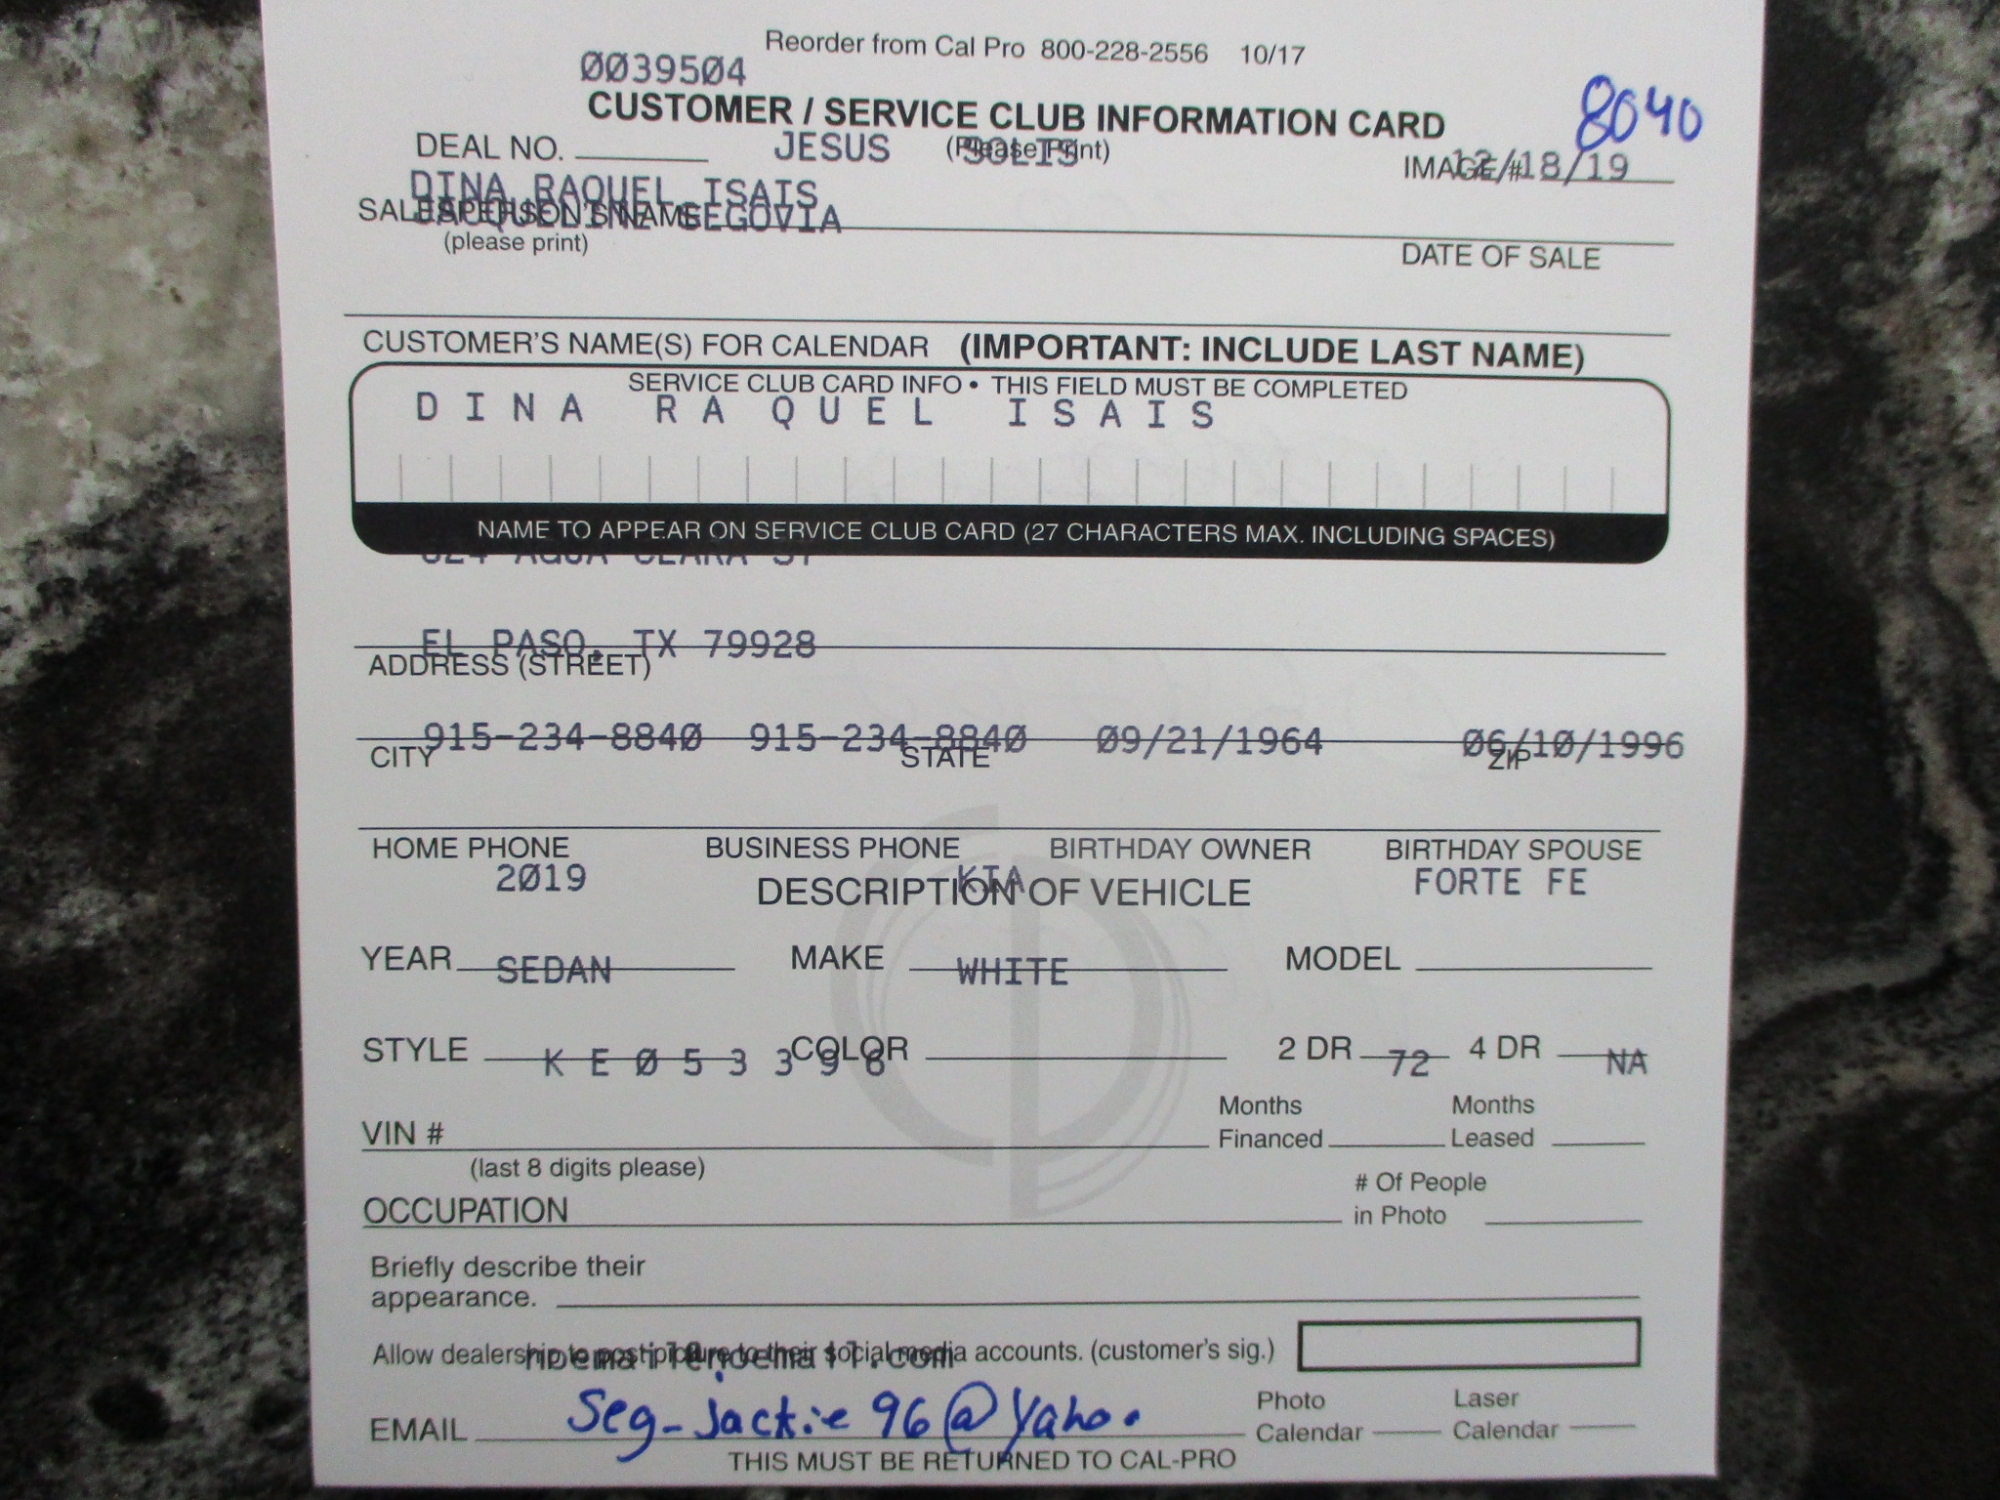 Reorder from Cal Pro 800-228-2556 10/17
0039504
CUSTOMER / SERVICE CLUB INFORMATION CARD
8040
DEAL NO. JESUS SOLIS (Please Print)
IMAGE # 12/18/19
DINA RAQUEL ISAIS
SALESPERSON'S NAME JACQUELINE SEGOVIA
(please print)
DATE OF SALE
CUSTOMER'S NAME(S) FOR CALENDAR (IMPORTANT: INCLUDE LAST NAME)
SERVICE CLUB CARD INFO • THIS FIELD MUST BE COMPLETED
DINA RAQUEL ISAIS
NAME TO APPEAR ON SERVICE CLUB CARD (27 CHARACTERS MAX. INCLUDING SPACES)
AGUA CLARA ST
EL PASO, TX 79928
ADDRESS (STREET)
915-234-8840 915-234-8840 09/21/1964 06/10/1996
CITY STATE ZIP
HOME PHONE BUSINESS PHONE BIRTHDAY OWNER BIRTHDAY SPOUSE
2019 KIA FORTE FE
DESCRIPTION OF VEHICLE
YEAR SEDAN MAKE WHITE MODEL
STYLE COLOR 2 DR 72 4 DR NA
K E 0 5 3 3 9 8
Months Financed Months Leased
VIN #
(last 8 digits please)
OCCUPATION
# Of People in Photo
Briefly describe their
appearance.
Allow dealership to post picture to their social media accounts. (customer's sig.)
noemail@noemail.com
EMAIL Seg-jackie96@yahoo
Photo Calendar Laser Calendar
THIS MUST BE RETURNED TO CAL-PRO